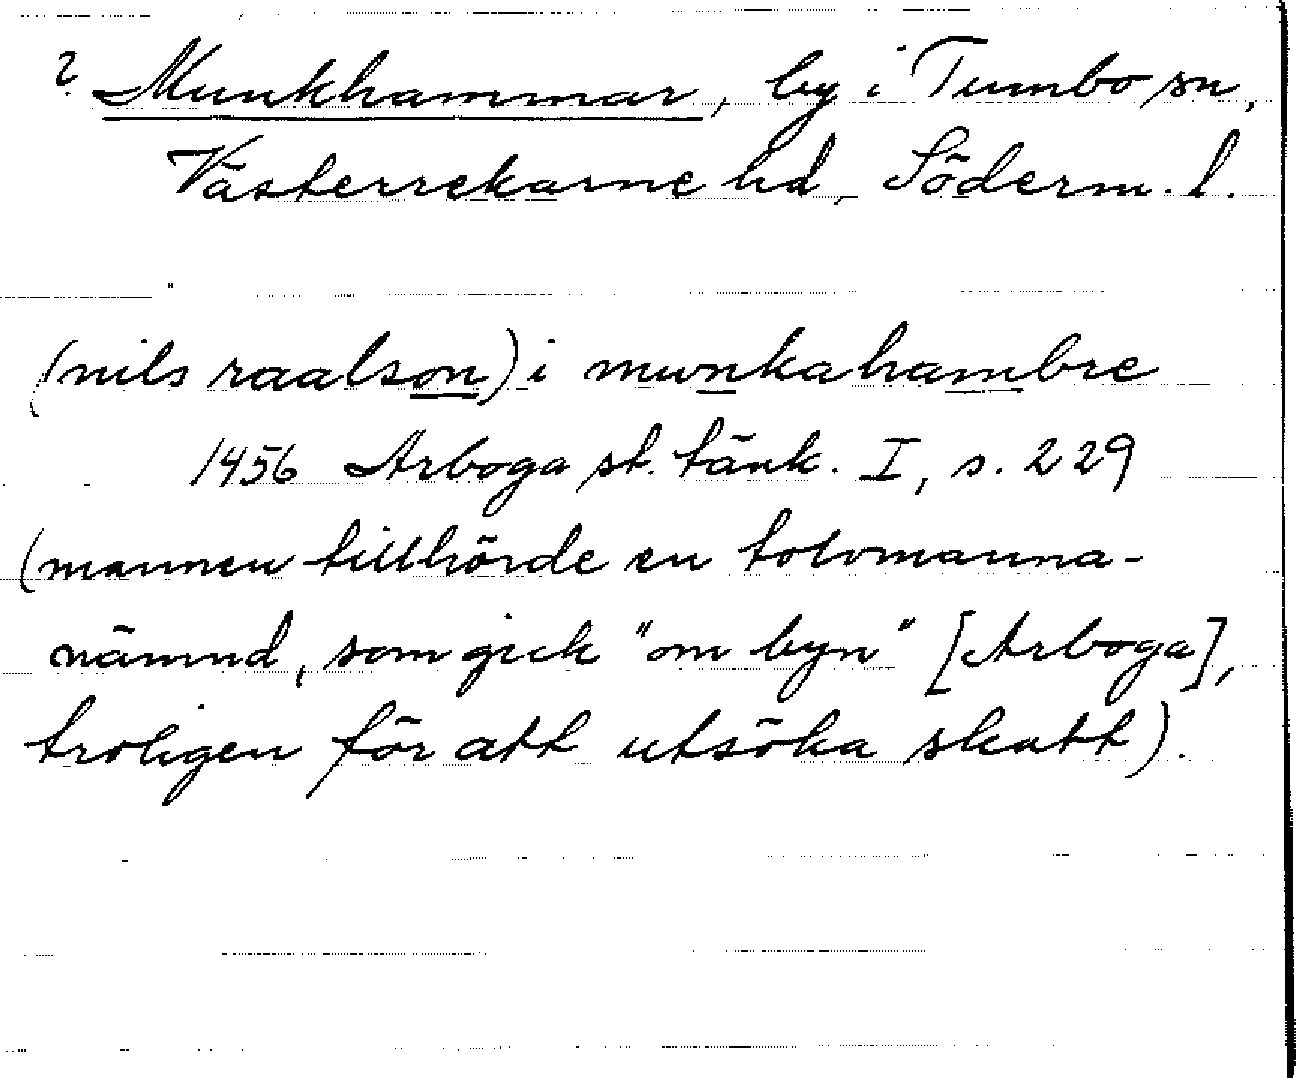 ? Munkhammar, by i Tumbo sn,
Västerrekarne hd, Söderm. l.
(nils raalson) i munkahambre
1456 Arboga st. tänk. I, s. 229
(mannen tillhörde en tolvmanna-
nämnd, som gick "om byn" [Arboga],
troligen för att utsöka skatt).